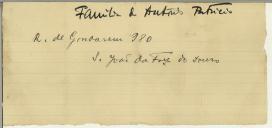 Familia de António Patricio
R. de Gondarem 980
S. João da Foz do Douro